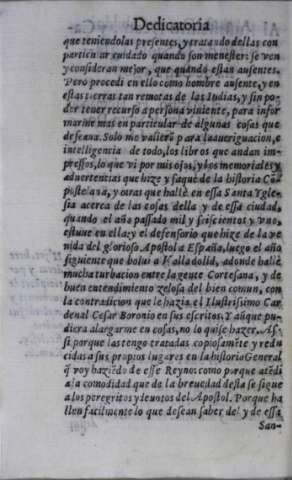 Dedicatoria
que teniendolas presentes, y tratando dellas con
particular cuidado quando son menester: se ven
y consideran mejor, que quando estan ausentes.
Pero procedi en ello como hombre ausente, y en
estas tierras tan remotas de las Indias, y sin po-
der tener recurso a persona viuiente, para infor
marme mas en particular de algunas cosas que
deseaua. Solo me vallerō para la aueriguacion, e
intelligencia de todo, los libros que andan im-
pressos, lo que vi por mis ojos, y los memoriales y
aduertentias que hize y saque de la historia Cō
postelana, y otras que hallè en essa Santa Ygle-
sia acerca de las cosas della y de essa ciudad,
quando el año passado mil y seiscientos y vno,
estuue en ella: y el defensorio que hize de la ve
nida del glorioso Apostol a España, luego el año
siguiente que bolui a Valladolid, adonde hallè
mucha turbacion entre la gente Cortesana, y de
buen entendimiento zelosa del bien comun, con
la contradicion que le hazia el Ilustrissimo Car
denal Cesar Boronio en sus escritos. Y aūque pu-
diera alargarme en cosas, no lo quise hazer, As-
si porque las tengo tratadas copiosamēte y redu
cidas a sus propios lugares en la historia General
q̄ voy haziēdo de esse Reyno: como porque atēdi
a la comodidad que de la breuedad desta se sigue
a los peregritos y deuotos del Apostol. Porque ha
llen facilmente lo que desean saber del y de essa
San-